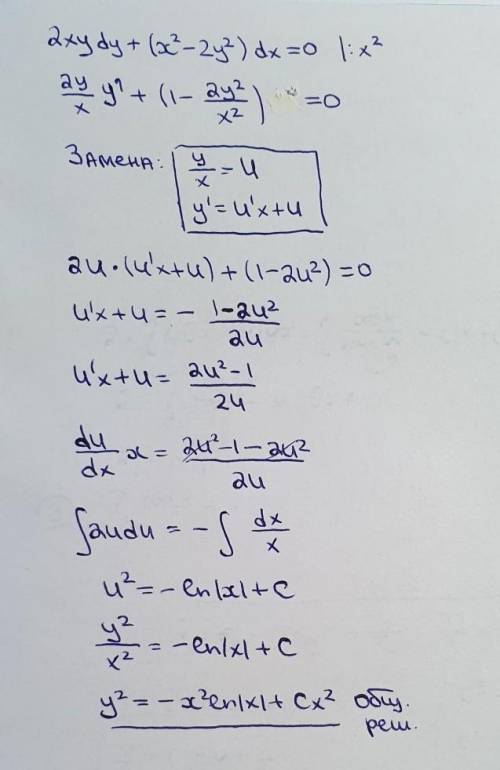 2xydy + (x² - 2y²) dx = 0 |: x²
2y/x y' + (1 - 2y²/x²) = 0
Замена: y/x = u
y' = u'x + u
2u · (u'x + u) + (1 - 2u²) = 0
u'x + u = - (1 - 2u²)/2u
u'x + u = (2u² - 1)/2u
du/dx x = (2u² - 1 - 2u²)/2u
∫2udu = - ∫ dx/x
u² = - ln|x| + C
y²/x² = - ln|x| + C
y² = - x² ln|x| + Cx² общ.
реш.